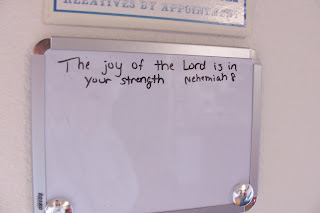 RELATIVES BY APPOINTMENT
The joy of the Lord is in
your strength Nehemiah 8